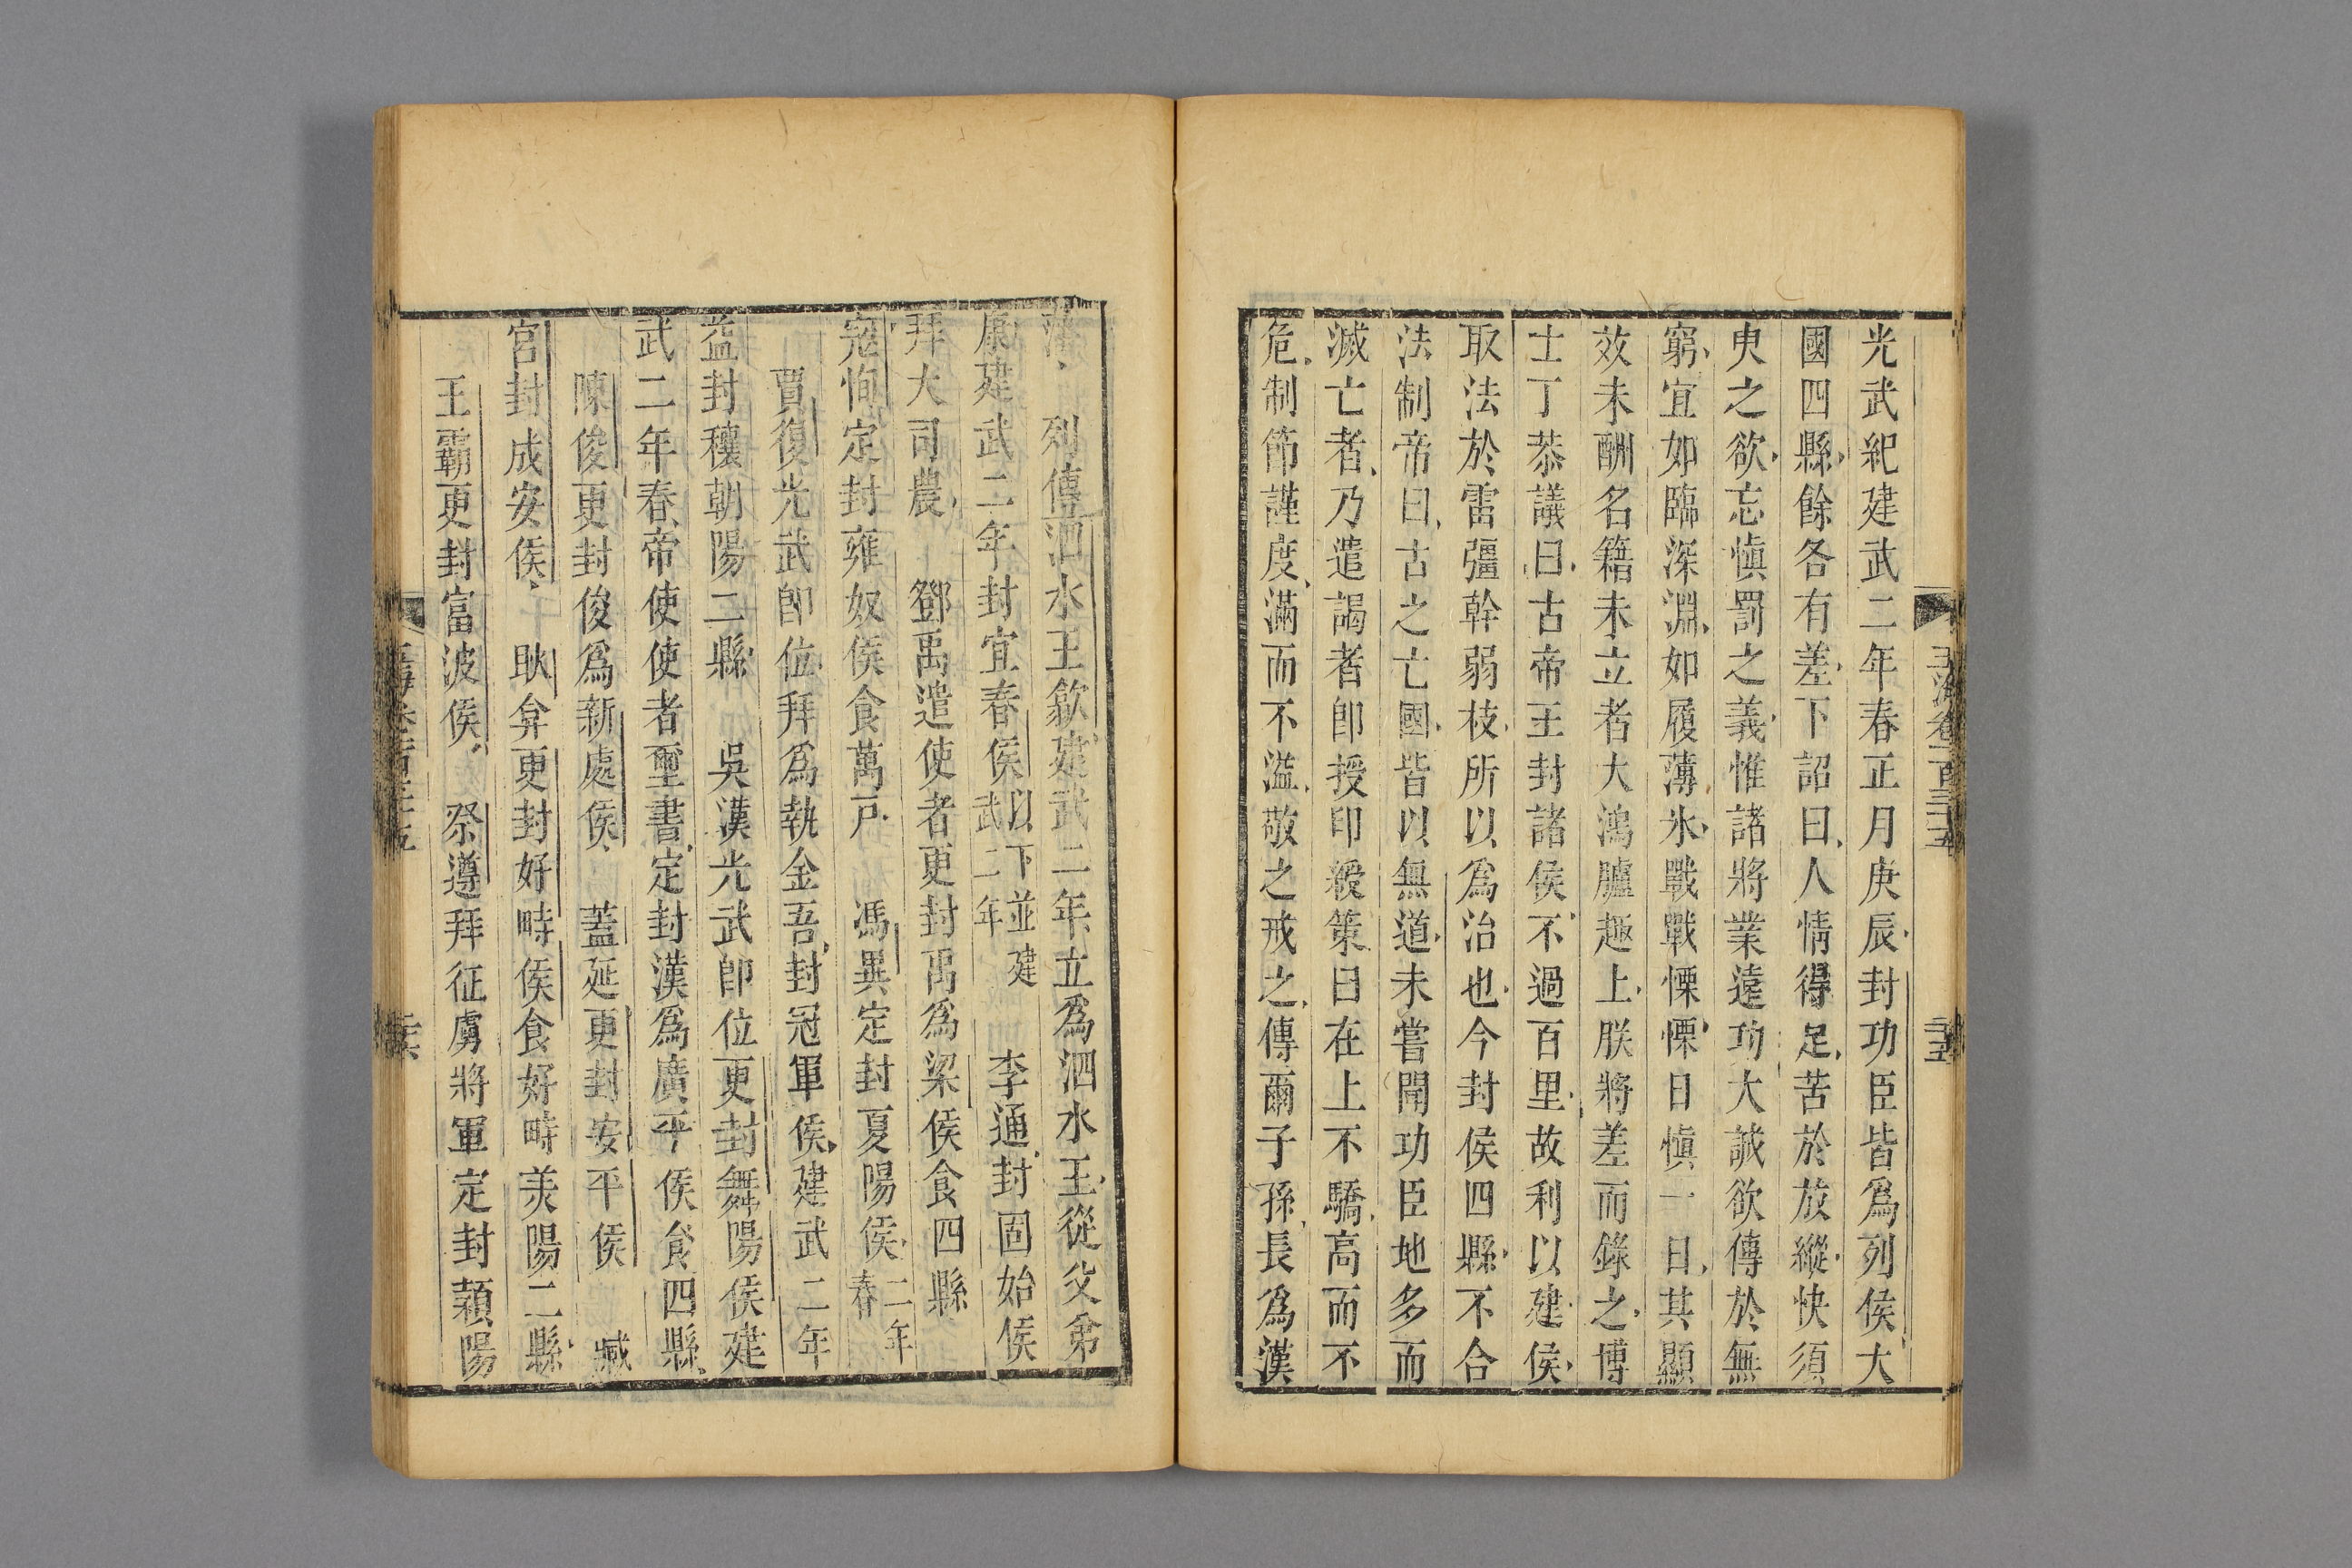 玉海卷一百三十五
三十五
光武紀建武二年春正月庚辰封功臣皆爲列侯大
國四縣餘各有差下詔曰人情得足苦於放縱快須
臾之欲忘愼罰之義惟諸將業遠功大誠欲傳於無
窮宜如臨深淵如履薄氷戰戰慄慄日愼一日其顯
效未酬名籍未立者大鴻臚趣上朕將差而錄之博
士丁恭議曰古帝王封諸侯不過百里故利以建侯
取法於雷彊幹弱枝所以爲治也今封侯四縣不合
法制帝曰古之亡國皆以無道未嘗聞功臣地多而
滅亡者乃遣謁者卽授印綬策曰在上不驕高而不
危制節謹度滿而不溢敬之戒之傳爾子孫長爲漢
藩 列傳泗水王歙建武二年立爲泗水王從父弟
康建武二年封宜春侯以下並建武二年 李通封固始侯
拜大司農 鄧禹遣使者更封禹爲梁侯食四縣
寇恂定封雍奴侯食萬戶 馮異定封夏陽侯二年春
賈復光武卽位拜爲執金吾封冠軍侯建武二年
益封穰朝陽二縣 吳漢光武卽位更封舞陽侯建
武二年春帝使使者璽書定封漢爲廣平侯食四縣
陳俊更封俊爲新處侯 蓋延更封安平侯 臧
宮封成安侯 耿弇更封好畤侯食好畤美陽二縣
王霸更封富波侯 祭遵拜征虜將軍定封潁陽